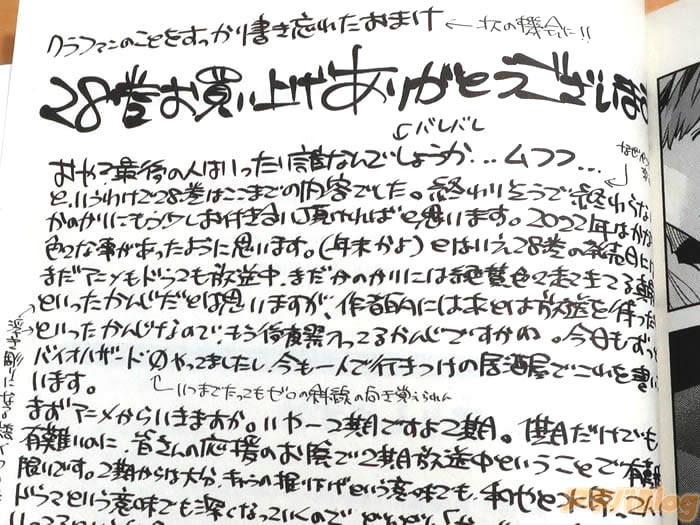 クラフマンのことをすっかり書き忘れたおまけ ←次の機会に!!
28巻お買い上げありがとうございま
↙バレバレ
おや?最後の人はいったい誰なんでしょうか…ムフフ…
というわけで28巻はここまでの内容でした。終わりそうで終わらな
かのかりにもう少しお付き合い頂ければと思います。2022年はかな
色々な事があったように思います。(年末かよ)とはいえ28巻の発売日に
まだアニメもドラマも放送中、まだかのかりには絶賛色々走ってる
といったかんじだとは思いますが、作者的にはあとは放送を待った
といったかんじなので、もう結構終わってるかんじですかね。今日もずっと
バイオハザード0やってましたし、今も一人で行きつけの居酒屋でこれを書い
います。
↑いつまでたってもゼロの斜線の向き覚えられん
まずアニメからいきますか。いやー2期ですよ2期。1期だけでも
有難いのに、皆さんの応援のお陰で2期放送中ということで有難
限りです。2期からは大分、キャラの掘り下げという意味でも、和也と水原
ドラマという意味でも深くなっていくので
メギバlog